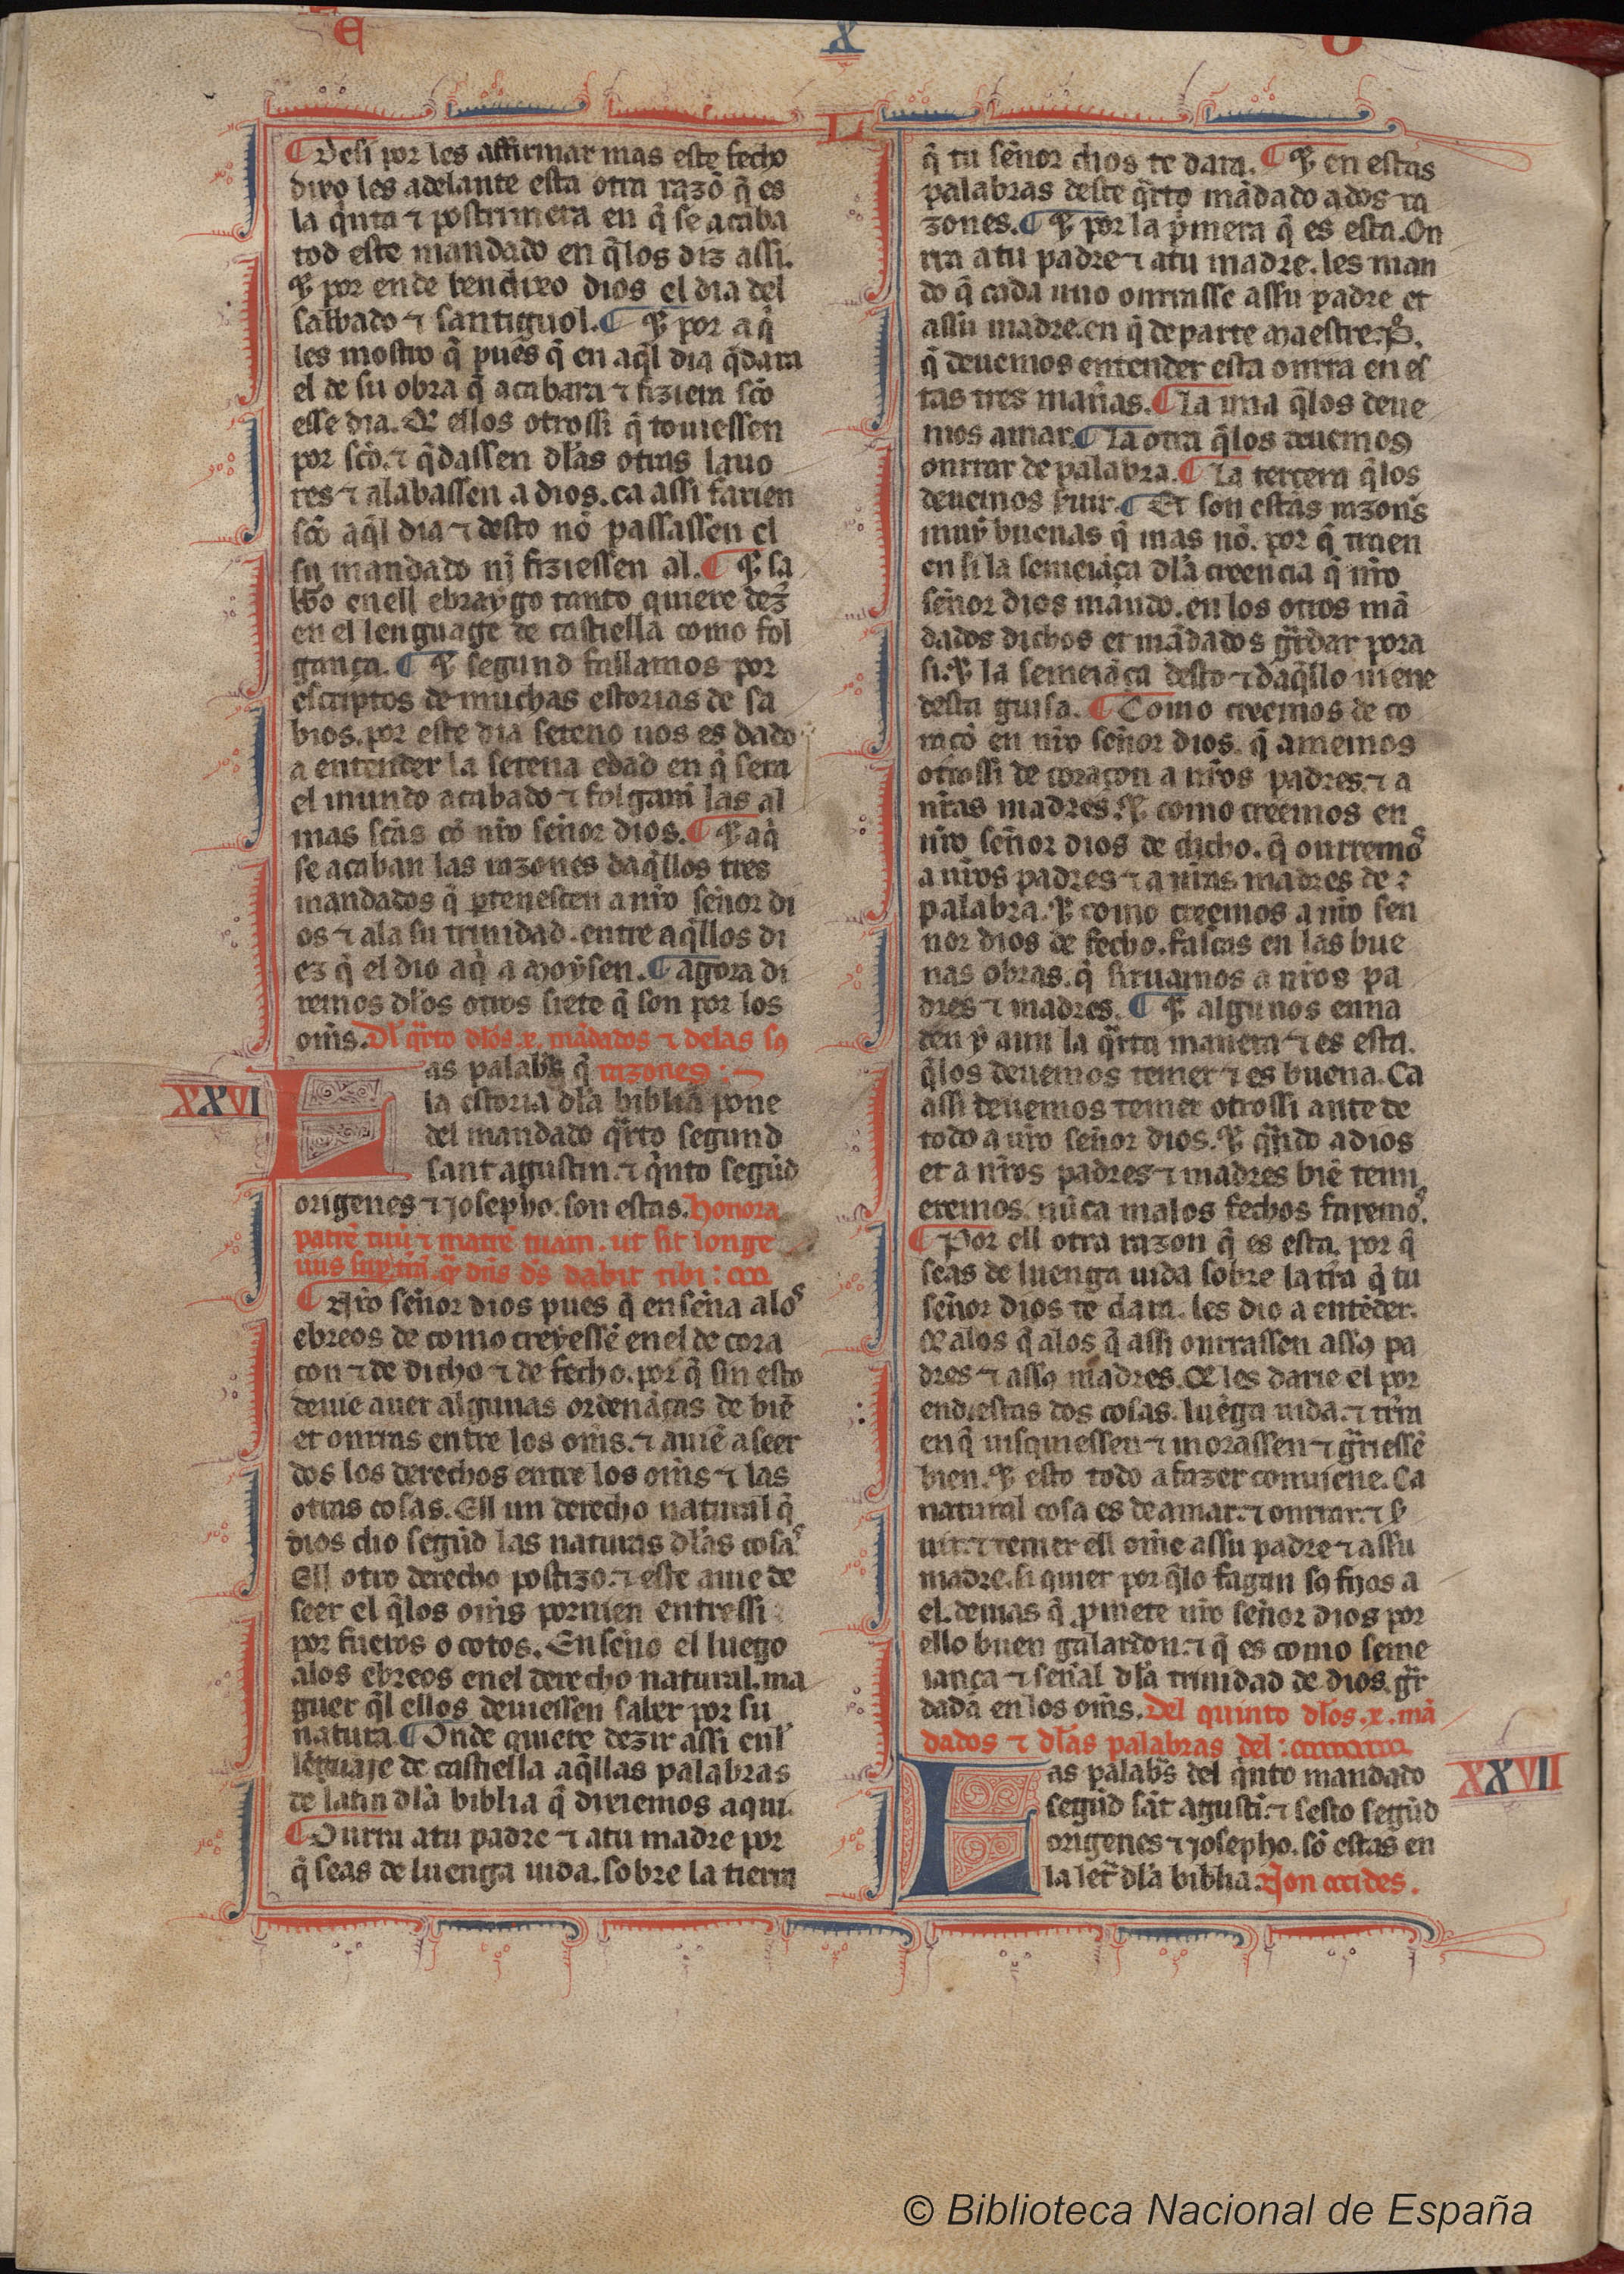 E X O
¶ Desi por les affirmar mas este fecho
dixo les adelante esta otra razõ q̃ es
la q̃nta ⁊ postrimera en q̃ se acaba
tod este mandado en q̃los diz assi.
⁊ por ende bendixo dios el dia del
sabbado ⁊ santiguol. ¶ ⁊ por aq̃
les mostro q̃ pues q̃ en aq̃l dia q̃dara
el de su obra q̃ acabara ⁊ fiziera sc̃o
esse dia. Et ellos otrossi q̃ touiessen
por sc̃o. ⁊ q̃dassen dl̃as otras lauo
res ⁊ alabassen a dios. ca assi farien
sc̃o aq̃l dia ⁊ desto nõ passassen el
su mandado nj fiziessen al. ¶ ⁊ sa
bbo en ell ebraygo tanto quiere dez̃
en el lenguage de castiella como fol
gança. ¶ ⁊ segund fallamos por
escriptos de muchas estorias de sa
bios. por este dia seteno nos es dado
a entender la setena edad en q̃ sera
el mundo acabado ⁊ folgarã las al
mas sc̃as cõ nr̃o señor dios. ¶ ⁊ aq̃
se acaban las razones daq̃llos tres
mandados q̃ ꝑtenescen a nr̃o señor di
os ⁊ ala su trinidad. entre aq̃llos di
ez q̃ el dio aq̃ a moysen. ¶ agora di
remos dl̃os otros siete q̃ son por los
om̃s. Dl̃ q̃rto dl̃os .x. mãdados ⁊ delas sꝯ
as palabr̃s q̃ razones :~
XXVI
la estoria dl̃a biblia pone
del mandado q̃rto segund
sant agustin. ⁊ q̃nto segũd
origenes ⁊ josepho. son estas. Honora
patrẽ tuũ ⁊ matrẽ tuam. ut sit longe
uus suꝑ tr̃m. q̃ dñs d̃s dabit tibi :
¶ Nr̃o señor dios pues q̃ enseña alos
ebreos de como creyessẽ en el de cora
con ⁊ de dicho ⁊ de fecho. por q̃ sin esto
deuie auer algunas ordenãças de biẽ
et onrras entre los om̃s. ⁊ auiẽ a seer
dos los derechos entre los om̃s ⁊ las
otras cosas. Ell un derecho natural q̃
dios dio segũd las naturas dl̃as cosas.
Ell otro derecho postizo. ⁊ este auie de
seer el q̃los om̃s pornien entressi
por fueros o cotos. Enseño el luego
alos ebreos en el derecho natural. ma
guer q̃l ellos deuiessen saber por su
natura. ¶ Onde quiere dezir assi enl̃
lẽguaje de castiella aq̃llas palabras
de latin dl̃a biblia q̃ diriemos aqui.
¶ Ourra atu padre ⁊ atu madre por
q̃ seas de luenga uida. sobre la tierra
q̃ tu señor dios te dara. ¶ ⁊ en estas
palabras deste q̃rto mãdado a dos ra
zones. ¶ ⁊ por la p̃mera q̃ es esta. On
rra atu padre ⁊ atu madre. les man
do q̃ cada uno onrrasse assu padre et
assu madre. en q̃ departe maestre .P̃.
q̃ deuemos entender esta onrra en es
tas tres mañas. ¶ La una q̃los deue
mos amar. ¶ La otra q̃los deuemos
onrrar de palabra. ¶ La tercera q̃los
deuemos s̃uir. ¶ Et son estas razoñs
muy buenas q̃ mas nõ. por q̃ tinen
en si la semeiãça dl̃a creencia q̃ nr̃o
señor dios mãndo. en los otros mã
dados dichos et mãdados gr̃dar pora
si. ⁊ la semeiãça desto ⁊ daq̃llo uiene
desta guisa. ¶ Como creemos de co
racõ en nr̃o señor dios. q̃ amemos
otrossi de coraçon a nr̃os padres. ⁊ a
nr̃as madres. ⁊ como creemos en
nr̃o señor dios de dicho. q̃ onrremos
a nr̃os padres ⁊ a nr̃as madres de
palabra. ⁊ como creemos a nr̃o sen
nor dios de fecho. fascas en las bue
nas obras. q̃ siruamos a nr̃os pa
dres ⁊ madres. ¶ ⁊ algunos enna
den y aun la q̃rta manera ⁊ es esta.
q̃los deuemos temer ⁊ es buena. Ca
assi deuemos temer otrossi ante de
todo a nr̃o señor dios. ⁊ q̃ndo a dios
et a nr̃os padres ⁊ madres biẽ temi
eremos. nũca malos fechos faremos.
¶ Por ell otra razon q̃ es esta. por q̃
seas de luenga uida sobre la tr̃a q̃ tu
señor dios te dara. les dio a entẽder.
Et alos q̃ alos q̃ assi onrrassen assꝯ pa
dres ⁊ assꝯ madres. Et les darie el por
end estas dos cosas. luẽga uida. ⁊ tr̃ra
en q̃ uisquiessen ⁊ morassen ⁊ gr̃iessẽ
bien. ⁊ esto todo a fazer conuiene. Ca
natural cosa es de amar. ⁊ onrrar. ⁊ s̃
uir. ⁊ temer ell om̃e assu padre ⁊ assu
madre. si quier por q̃lo fagan sꝯ fijos a
el. demas q̃ ꝓmete nr̃o señor dios por
ello buen galardon. ⁊ q̃ es como seme
iança ⁊ señal dl̃a trinidad de dios. gr̃
dada en los om̃s. Del quinto dl̃os .x. mã
dados ⁊ dl̃as palabras del :
XXVII
Las palabr̃s del q̃nto mandado
segũd sãt agusti. ⁊ sesto segũd
origenes ⁊ josepho. sõ estas en
la letr̃ dl̃a biblia. Non occides.
© Biblioteca Nacional de España